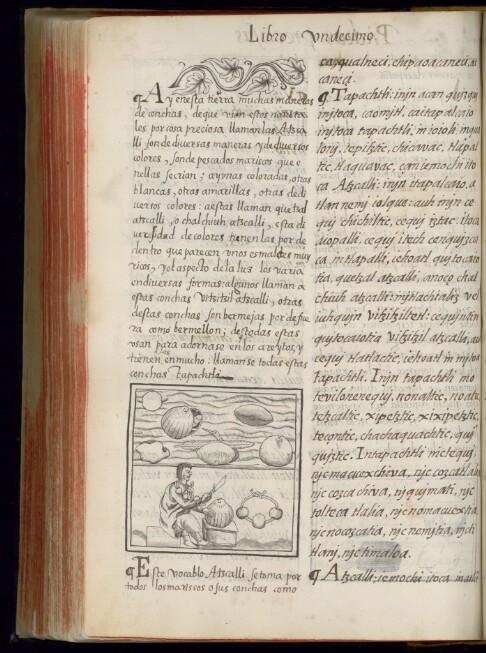 Libro Vndecimo.
¶ Ay en esta tierra muchas maneras
de conchas, de que vsan estos natura
les por cosa preciosa llamanlas Atzca
lli son de diuersas maneras y de diuersos
colores, son de pescados mariscos que e
nellas se crian; ay unas coloradas, otras
blancas, otras amarillas, otras de di
uersos colores: a estas llaman quetzal
atzcalli, o chalchiuh atzcalli, esta di
uersidad de colores tienen las por de
dentro que parecen vnos esmaltes muy
ricos, y el aspecto de la luz los varia
en diuersas formas: algunos llaman a
estas conchas Vitzitzil atzcalli, otras
destas conchas son bermejas por defue
ra como bermellon; de todas estas
vsan para adornarse en los areytos, y
tienen las en mucho: llamanse todas estas
conchas Tapachtli
¶ Este vocablo Atzcalli se toma por
todos los mariscos o sus conchas como
caneci.
¶ Tapachtli: injn acan qujzquj
injtoca, ca omjtl, ca itapalcaio
injtoca tapachtli, mjoioli:
tepitztic, chicavac, tlapal
tic, tlaquavac, çan ie mochi ito
ca Atzcalli: injn itapalcaio, a
tlan nemj iolque: auh injn ce
quj chichiltic, cequj iztac: itoca
cequj itech cenquizca
ca in tlapalli, iehoatl quitocaio
tia, quetzal atzcalli, anoço chal
chiuh atzcalli: injtlachializ vel
iuhqujn vitzitziltetl: cequjntin
quitocaiotia vitzitzil atzcalli, auh
cequj tlatlactic, iehoatl in injtoca
tapachtli. Injn tapachtli mo
teviloxenequj, nonaltic,
tetzcaltic, xipetztic, xixipetztic,
tecontic, chachaquachtic, quj
qujztic. In tapachtli nictequj,
njcmacuexchiva, njccozcatlalia
njccozcachiva, njqujmati, njc
tolteca tlalia, njcnomacuextia,
njcnocozcatia, njcnenmjtia,
tlanj, njctimaloa.
¶ Atzcalli: ie mochi itoca